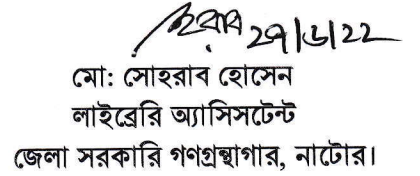 সোহরাব 27/6/22
মো: সোহরাব হোসেন
লাইব্রেরি অ্যাসিসটেন্ট
জেলা সরকারি গণগ্রন্থাগার, নাটোর।